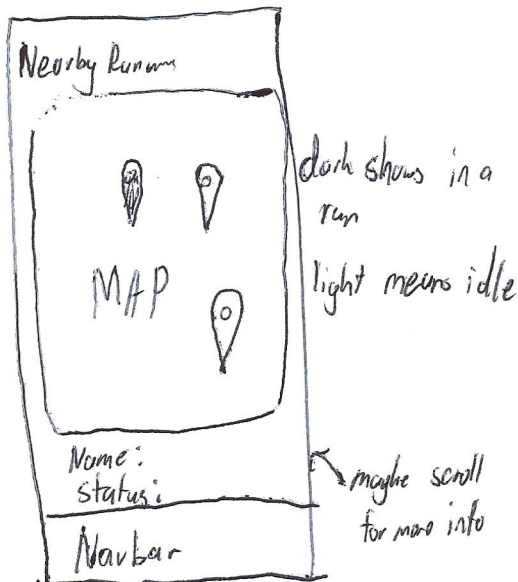 Nearby Runners
dark shows in a
run
MAP
light means idle
Name:
Status:
maybe scroll
for more info
Navbar